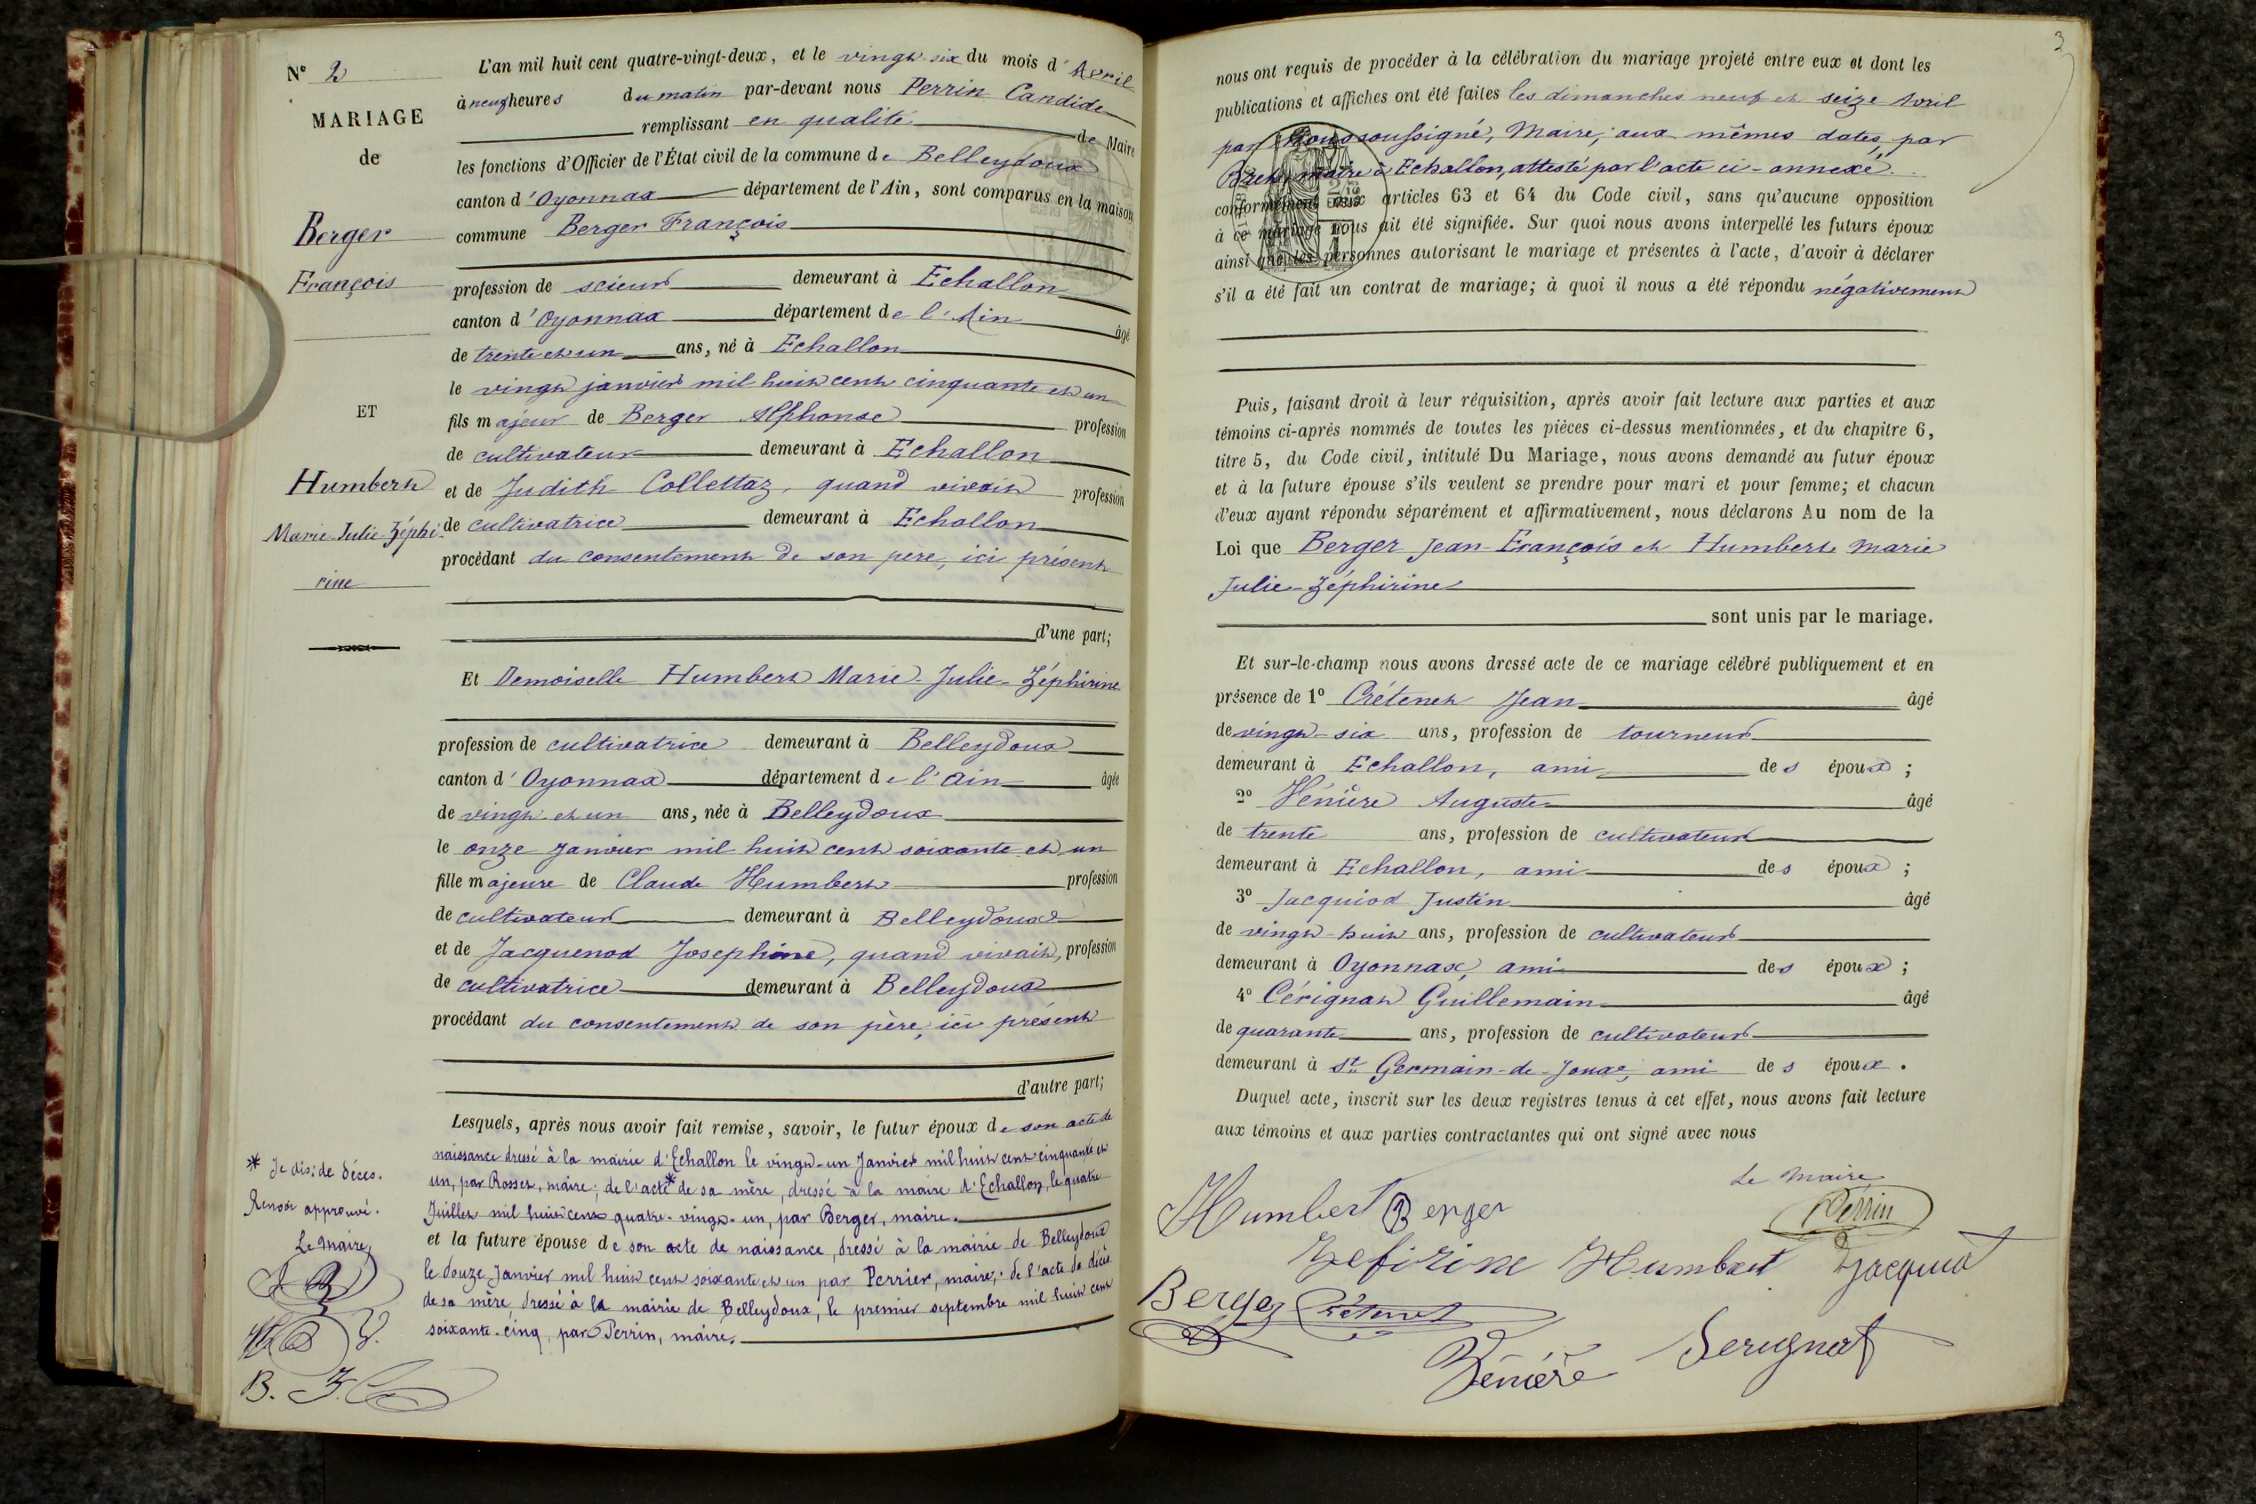 N° 2
MARIAGE
de
Berger
François
ET
Humbert
Marie-Julie-Zéphi-
rine
L'an mil huit cent quatre-vingt-deux, et le vingt-six du mois d'Avril
à neuf heures du matin par-devant nous Perrin Candide
remplissant en qualité de Maire
les fonctions d'Officier de l'État civil de la commune de Belleydoux
canton d'Oyonnax département de l'Ain, sont comparus en la maison
commune Berger François
profession de scieur demeurant à Echallon
canton d'Oyonnax département de l'Ain âgé
de trente et un ans, né à Echallon
le vingt janvier mil huit cent cinquante et un
fils majeur de Berger Alphonse profession
de cultivateur demeurant à Echallon
et de Judith Collettaz, quand vivait profession
de cultivatrice demeurant à Echallon
procédant du consentement de son père, ici présent
d'une part;
Et Demoiselle Humbert Marie-Julie-Zéphirine
profession de cultivatrice demeurant à Belleydoux
canton d'Oyonnax département de l'Ain âgée
de vingt et un ans, née à Belleydoux
le onze Janvier mil huit cent soixante et un
fille majeure de Claude Humbert profession
de cultivateur demeurant à Belleydoux
et de Jacquenod Josephine, quand vivait, profession
de cultivatrice demeurant à Belleydoux
procédant du consentement de son père, ici présent
d'autre part;
Lesquels, après nous avoir fait remise, savoir, le futur époux de son acte de
naissance dressé à la mairie d'Echallon le vingt-un Janvier mil huit cent cinquante et
un, par Rosset, maire; de l'acte* de sa mère, dressé à la mairie d'Echallon, le quatre
Juillet mil huit cent quatre-vingt-un, par Berger, maire.
et la future épouse de son acte de naissance, dressé à la mairie de Belleydoux
le douze Janvier mil huit cent soixante et un par Perrier, maire; de l'acte de décès
de sa mère, dressé à la mairie de Belleydoux, le premier septembre mil huit cent
soixante-cinq, par Perrin, maire.
* Je dis: de décès.
Renvoi approuvé.
Le Maire
B. F.
3
nous ont requis de procéder à la célébration du mariage projeté entre eux et dont les
publications et affiches ont été faites les dimanches neuf et seize Avril
par Nous soussigné, Maire; aux mêmes dates, par
maire à Echallon, attesté par l'acte ci-annexé.
conformément aux articles 63 et 64 du Code civil, sans qu'aucune opposition
à ce mariage nous ait été signifiée. Sur quoi nous avons interpellé les futurs époux
ainsi que les personnes autorisant le mariage et présentes à l'acte, d'avoir à déclarer
s'il a été fait un contrat de mariage; à quoi il nous a été répondu négativement
Puis, faisant droit à leur réquisition, après avoir fait lecture aux parties et aux
témoins ci-après nommés de toutes les pièces ci-dessus mentionnées, et du chapitre 6,
titre 5, du Code civil, intitulé Du Mariage, nous avons demandé au futur époux
et à la future épouse s'ils veulent se prendre pour mari et pour femme; et chacun
d'eux ayant répondu séparément et affirmativement, nous déclarons Au nom de la
Loi que Berger Jean-François et Humbert Marie
Julie-Zéphirine
sont unis par le mariage.
Et sur-le-champ nous avons dressé acte de ce mariage célébré publiquement et en
présence de 1° Crétenet Jean âgé
de vingt-six ans, profession de tourneur
demeurant à Echallon, ami des époux;
2° Vénière Auguste âgé
de trente ans, profession de cultivateur
demeurant à Echallon, ami des époux;
3° Jacquiod Justin âgé
de vingt-huit ans, profession de cultivateur
demeurant à Oyonnax, ami des époux;
4° Cérignat Guillemain âgé
de quarante ans, profession de cultivateur
demeurant à St Germain-de-Joux, ami des époux.
Duquel acte, inscrit sur les deux registres tenus à cet effet, nous avons fait lecture
aux témoins et aux parties contractantes qui ont signé avec nous
Le Maire
Humbert Berger Perrin
Zefirine Humbert
Berger Crétenet
Vénière Serugnat